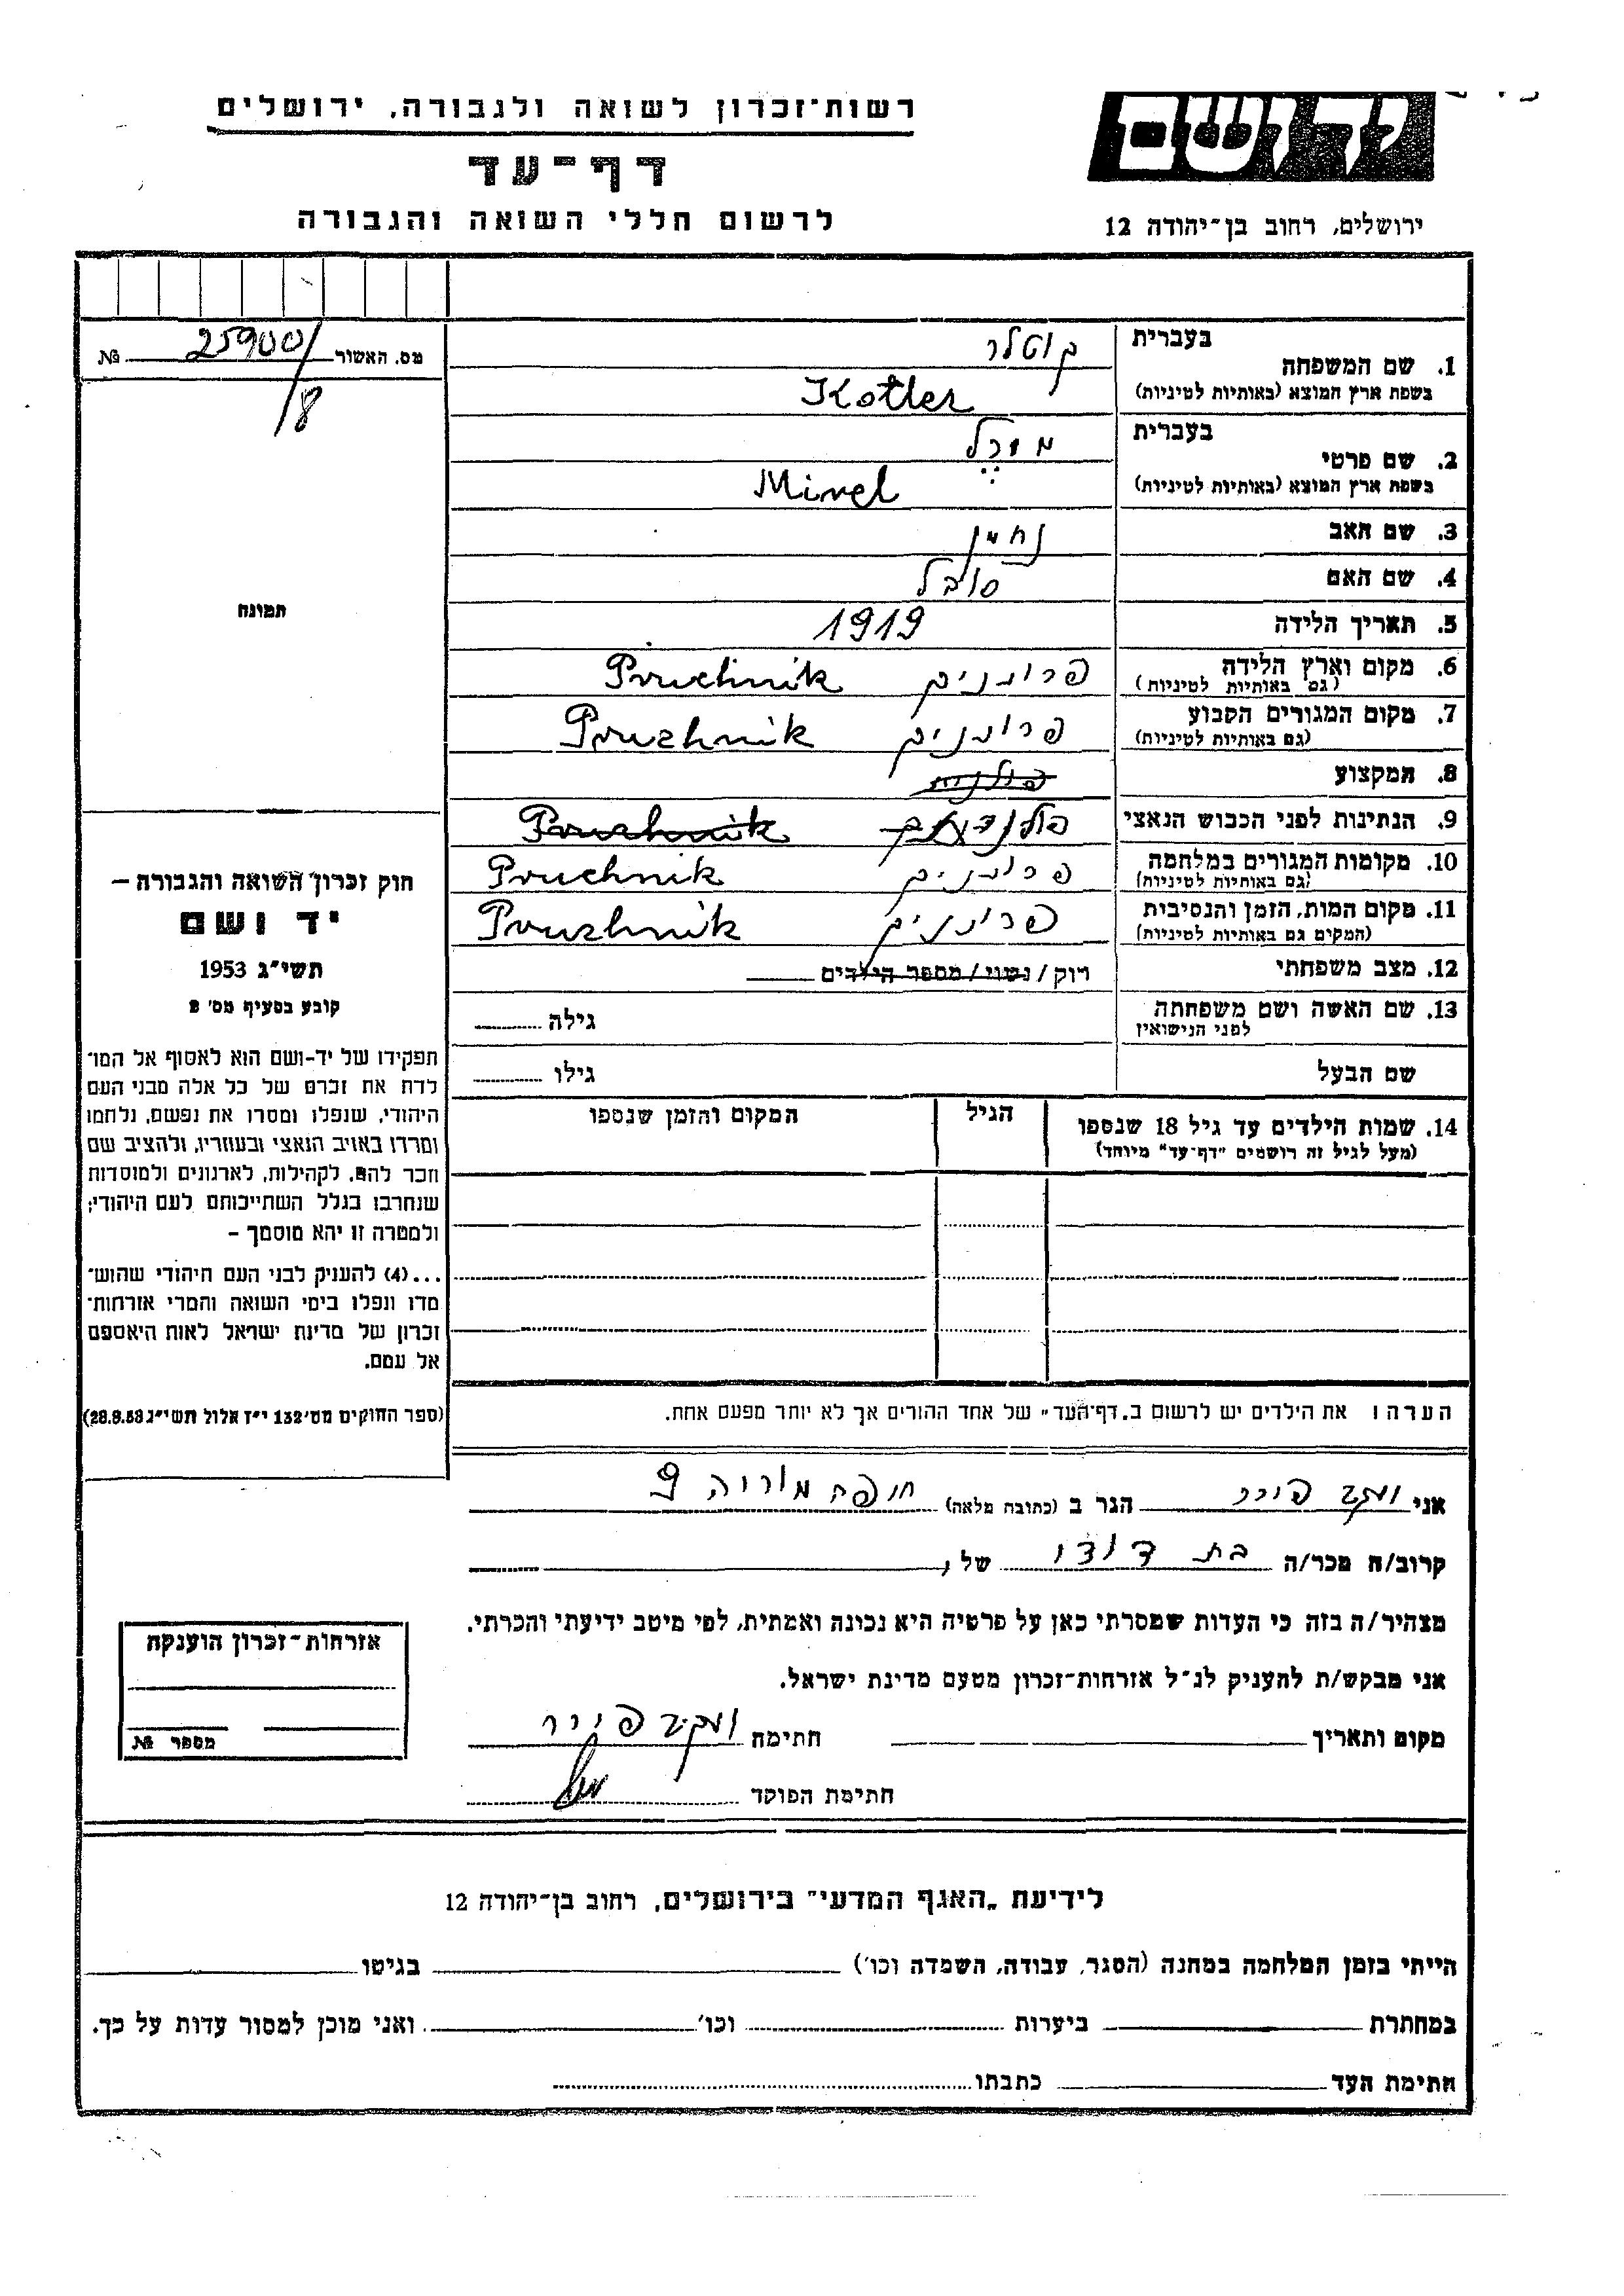 רשות־זכרון לשואה ולגבורה, ירושלים
יד ושם
דף־עד
לרשום חללי השואה והגבורה
ירושלים, רחוב בן־יהודה 12
מס. האשור 25900/8 №
בעברית קוטלר
1. שם המשפחה
בשפת ארץ המוצא (באותיות לטיניות) Kotler
בעברית
2. שם פרטי
בשפת ארץ המוצא (באותיות לטיניות) Mirel
3. שם האב נחמן
4. שם האם סובל
5. תאריך הלידה 1919
6. מקום וארץ הלידה
(גם באותיות לטיניות) Pruchnik
7. מקום המגורים הקבוע
(גם באותיות לטיניות) Pruzhnik
8. המקצוע
9. הנתינות לפני הכבוש הנאצי Pruzhnik
10. מקומות המגורים במלחמה
(גם באותיות לטיניות) Pruchnik
11. מקום המות, הזמן והנסיבות
(המקום גם באותיות לטיניות) Pruzhnik
12. מצב משפחתי רוק / נשוי / מספר הילדים
13. שם האשה ושם משפחתה גילה
לפני הנישואין
שם הבעל גילו
14. שמות הילדים עד גיל 18 שנספו הגיל המקום והזמן שנספו
(מעל לגיל זה רושמים "דף־עד" מיוחד)
הערה ו את הילדים יש לרשום ב„דף־העד" של אחד ההורים אך לא יותר מפעם אחת.
תמונה
חוק זכרון השואה והגבורה —
יד ושם
תשי"ג 1953
קובע בסעיף מס' 2
תפקידו של יד-ושם הוא לאסוף אל המו־
לדת את זכרם של כל אלה מבני העם
היהודי, שנפלו ומסרו את נפשם, נלחמו
ומרדו באויב הנאצי ובעוזריו, ולהציב שם
וזכר להם, לקהילות, לארגונים ולמוסדות
שנחרבו בגלל השתייכותם לעם היהודי;
ולמטרה זו יהא מוסמך –
...(4) להעניק לבני העם היהודי שהוש־
מדו ונפלו בימי השואה והמרי אזרחות־
זכרון של מדינת ישראל לאות היאספם
אל עמם.
(ספר החוקים מס' 132 י"ז אלול תשי"ג 28.8.53)
אני הגר ב (כתובת מלאה)
קרוב/ה מכר/ה בת דודו של
מצהיר/ה בזה כי העדות שמסרתי כאן על פרטיה היא נכונה ואמתית, לפי מיטב ידיעתי והכרתי.
אני מבקש/ת להעניק לנ"ל אזרחות־זכרון מטעם מדינת ישראל.
מקום ותאריך חתימה
חתימת הפוקד
אזרחות־זכרון הוענקה
מספר №
לידיעת „האגף המדעי" בירושלים, רחוב בן־יהודה 12
הייתי בזמן המלחמה במחנה (הסגר, עבודה, השמדה וכו') בגיטו
במחתרת ביערות וכו' ואני מוכן למסור עדות על כך.
חתימת העד כתבתו